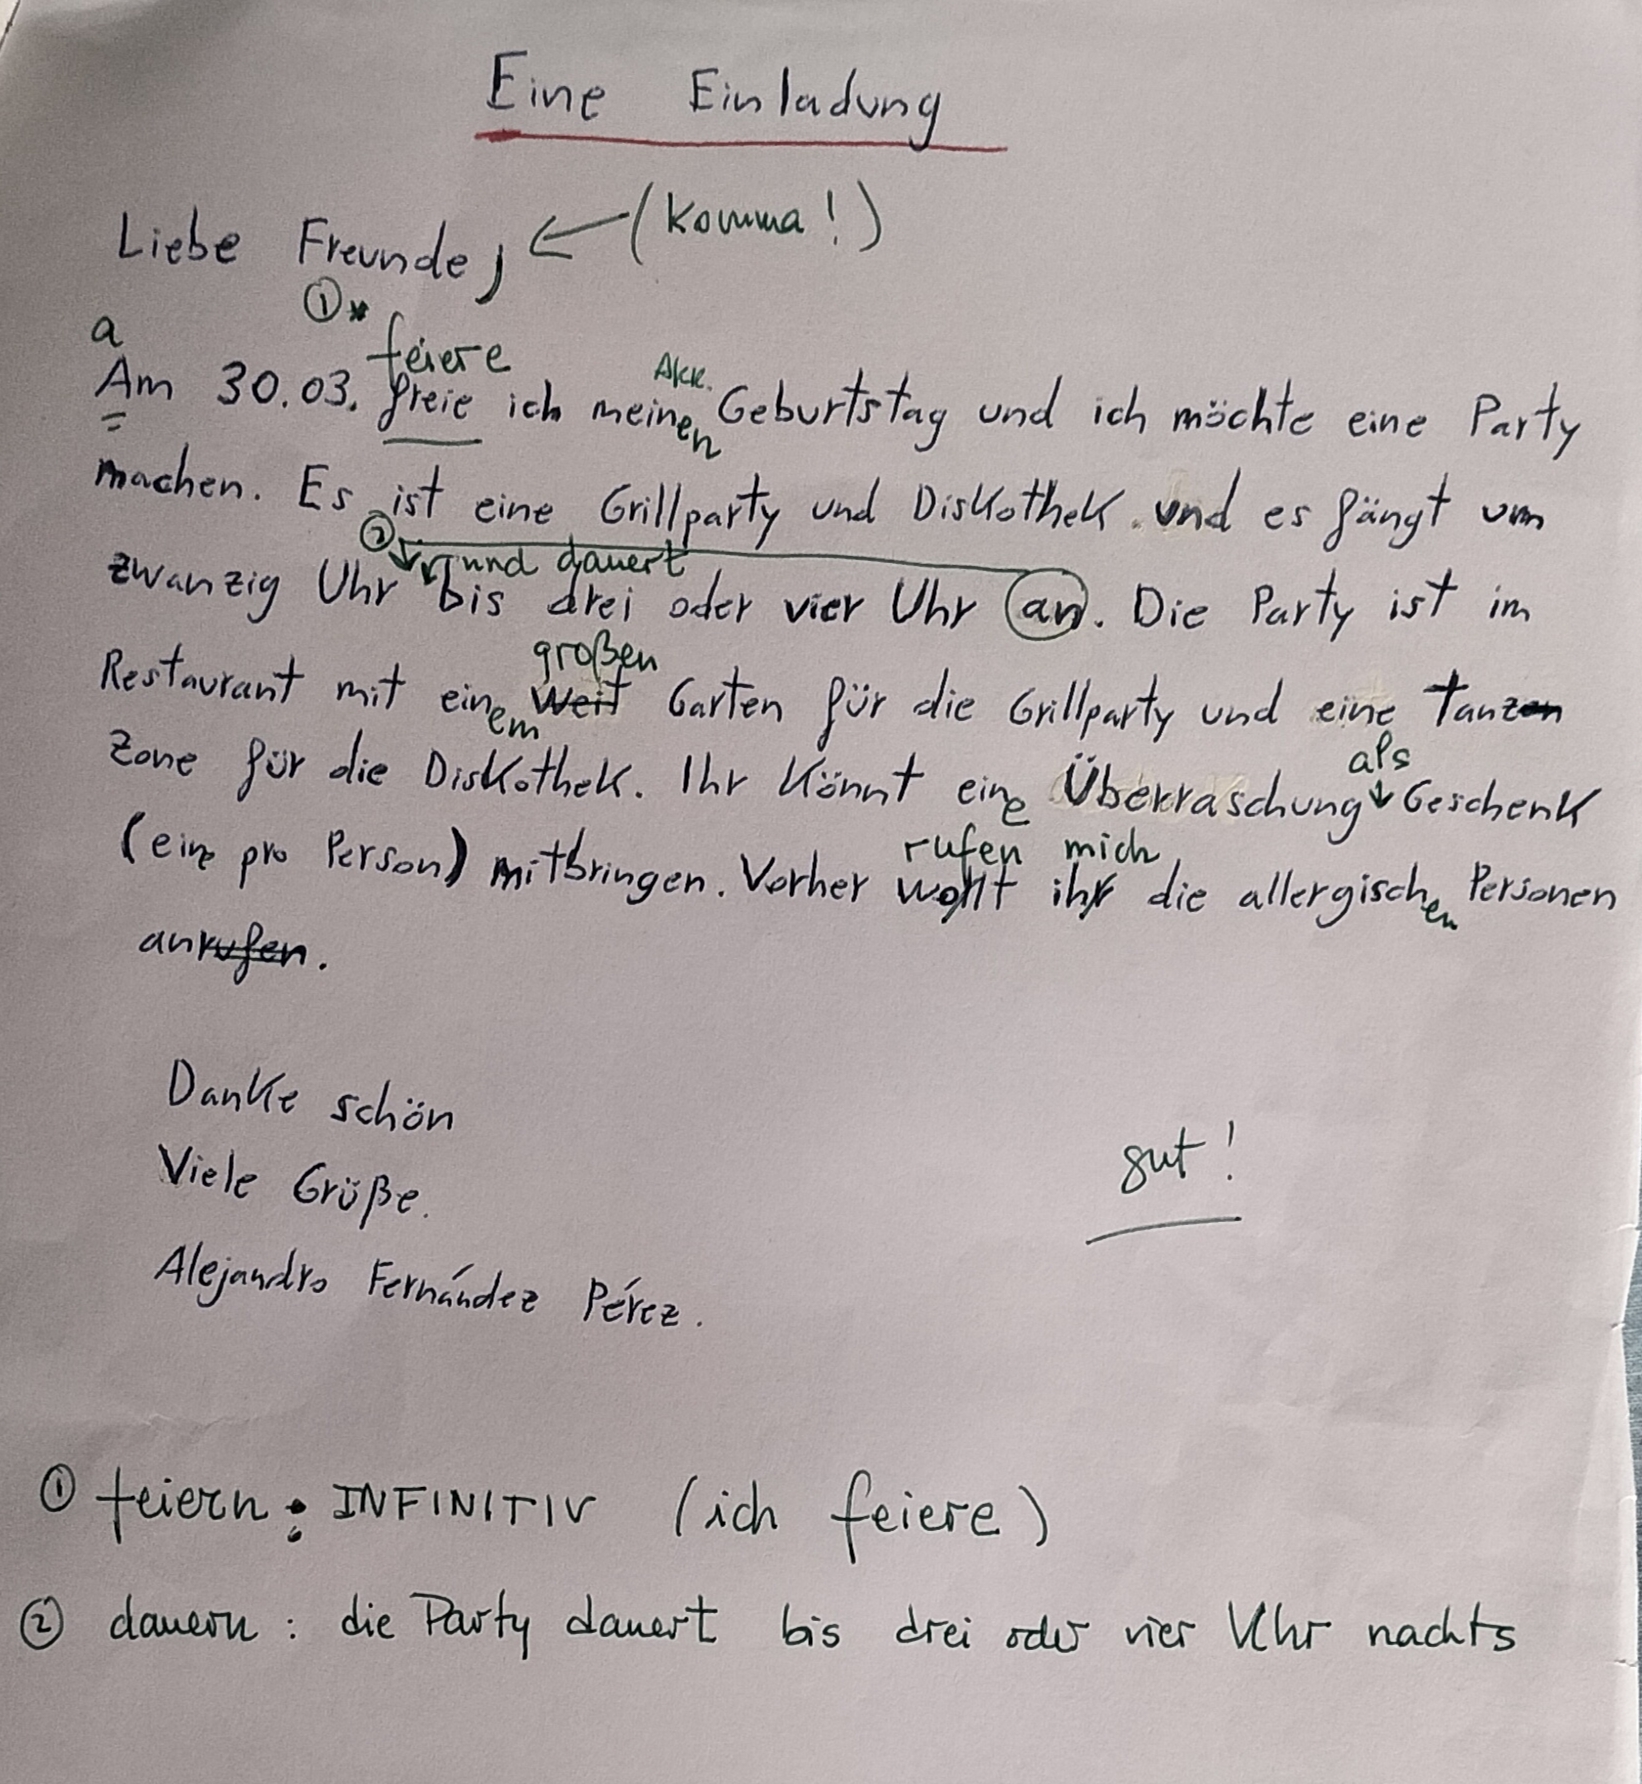 Eine Einladung
Liebe Freunde, ← (Komma!)
①*
a feiere Akk.
Am 30.03. freie ich meinen Geburtstag und ich möchte eine Party
machen. Es ist eine Grillparty und Diskothek und es fängt um
② und dauert
zwanzig Uhr bis drei oder vier Uhr an. Die Party ist im
großen
Restaurant mit einem Weit Garten für die Grillparty und eine Tanzen
als
Zone für die Diskothek. Ihr Könnt eine Überraschung Geschenk
rufen mich
(eine pro Person) mitbringen. Vorher wollt ihr die allergischen Personen
anrufen.
Danke schön
Viele Grüße.
gut!
Alejandro Fernández Pérez.
① feiern: INFINITIV (ich feiere)
② dauern: die Party dauert bis drei oder vier Uhr nachts